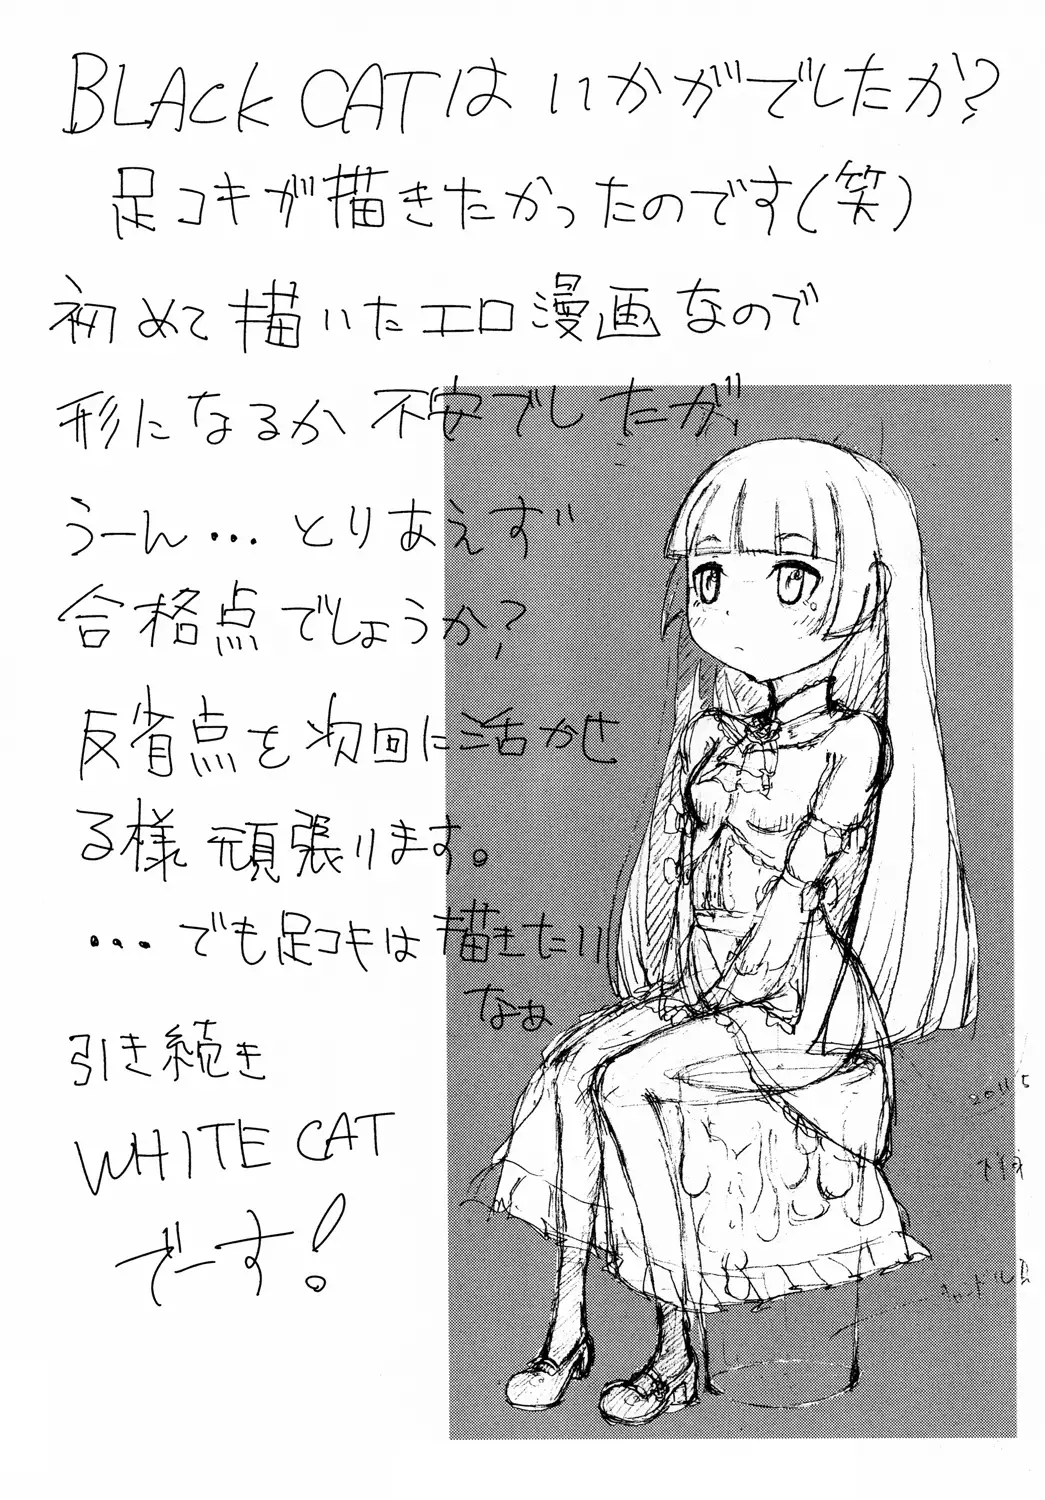 BLACK CATはいかがでしたか?
足コキが描きたかったのです(笑)
初めて描いたエロ漫画なので
形になるか不安でしたが、
うーん…とりあえず
合格点でしょうか?
反省点を次回に活かせ
る様頑張ります。
…でも足コキは描きたい
なぁ
引き続き
WHITE CAT
でーす!
2011